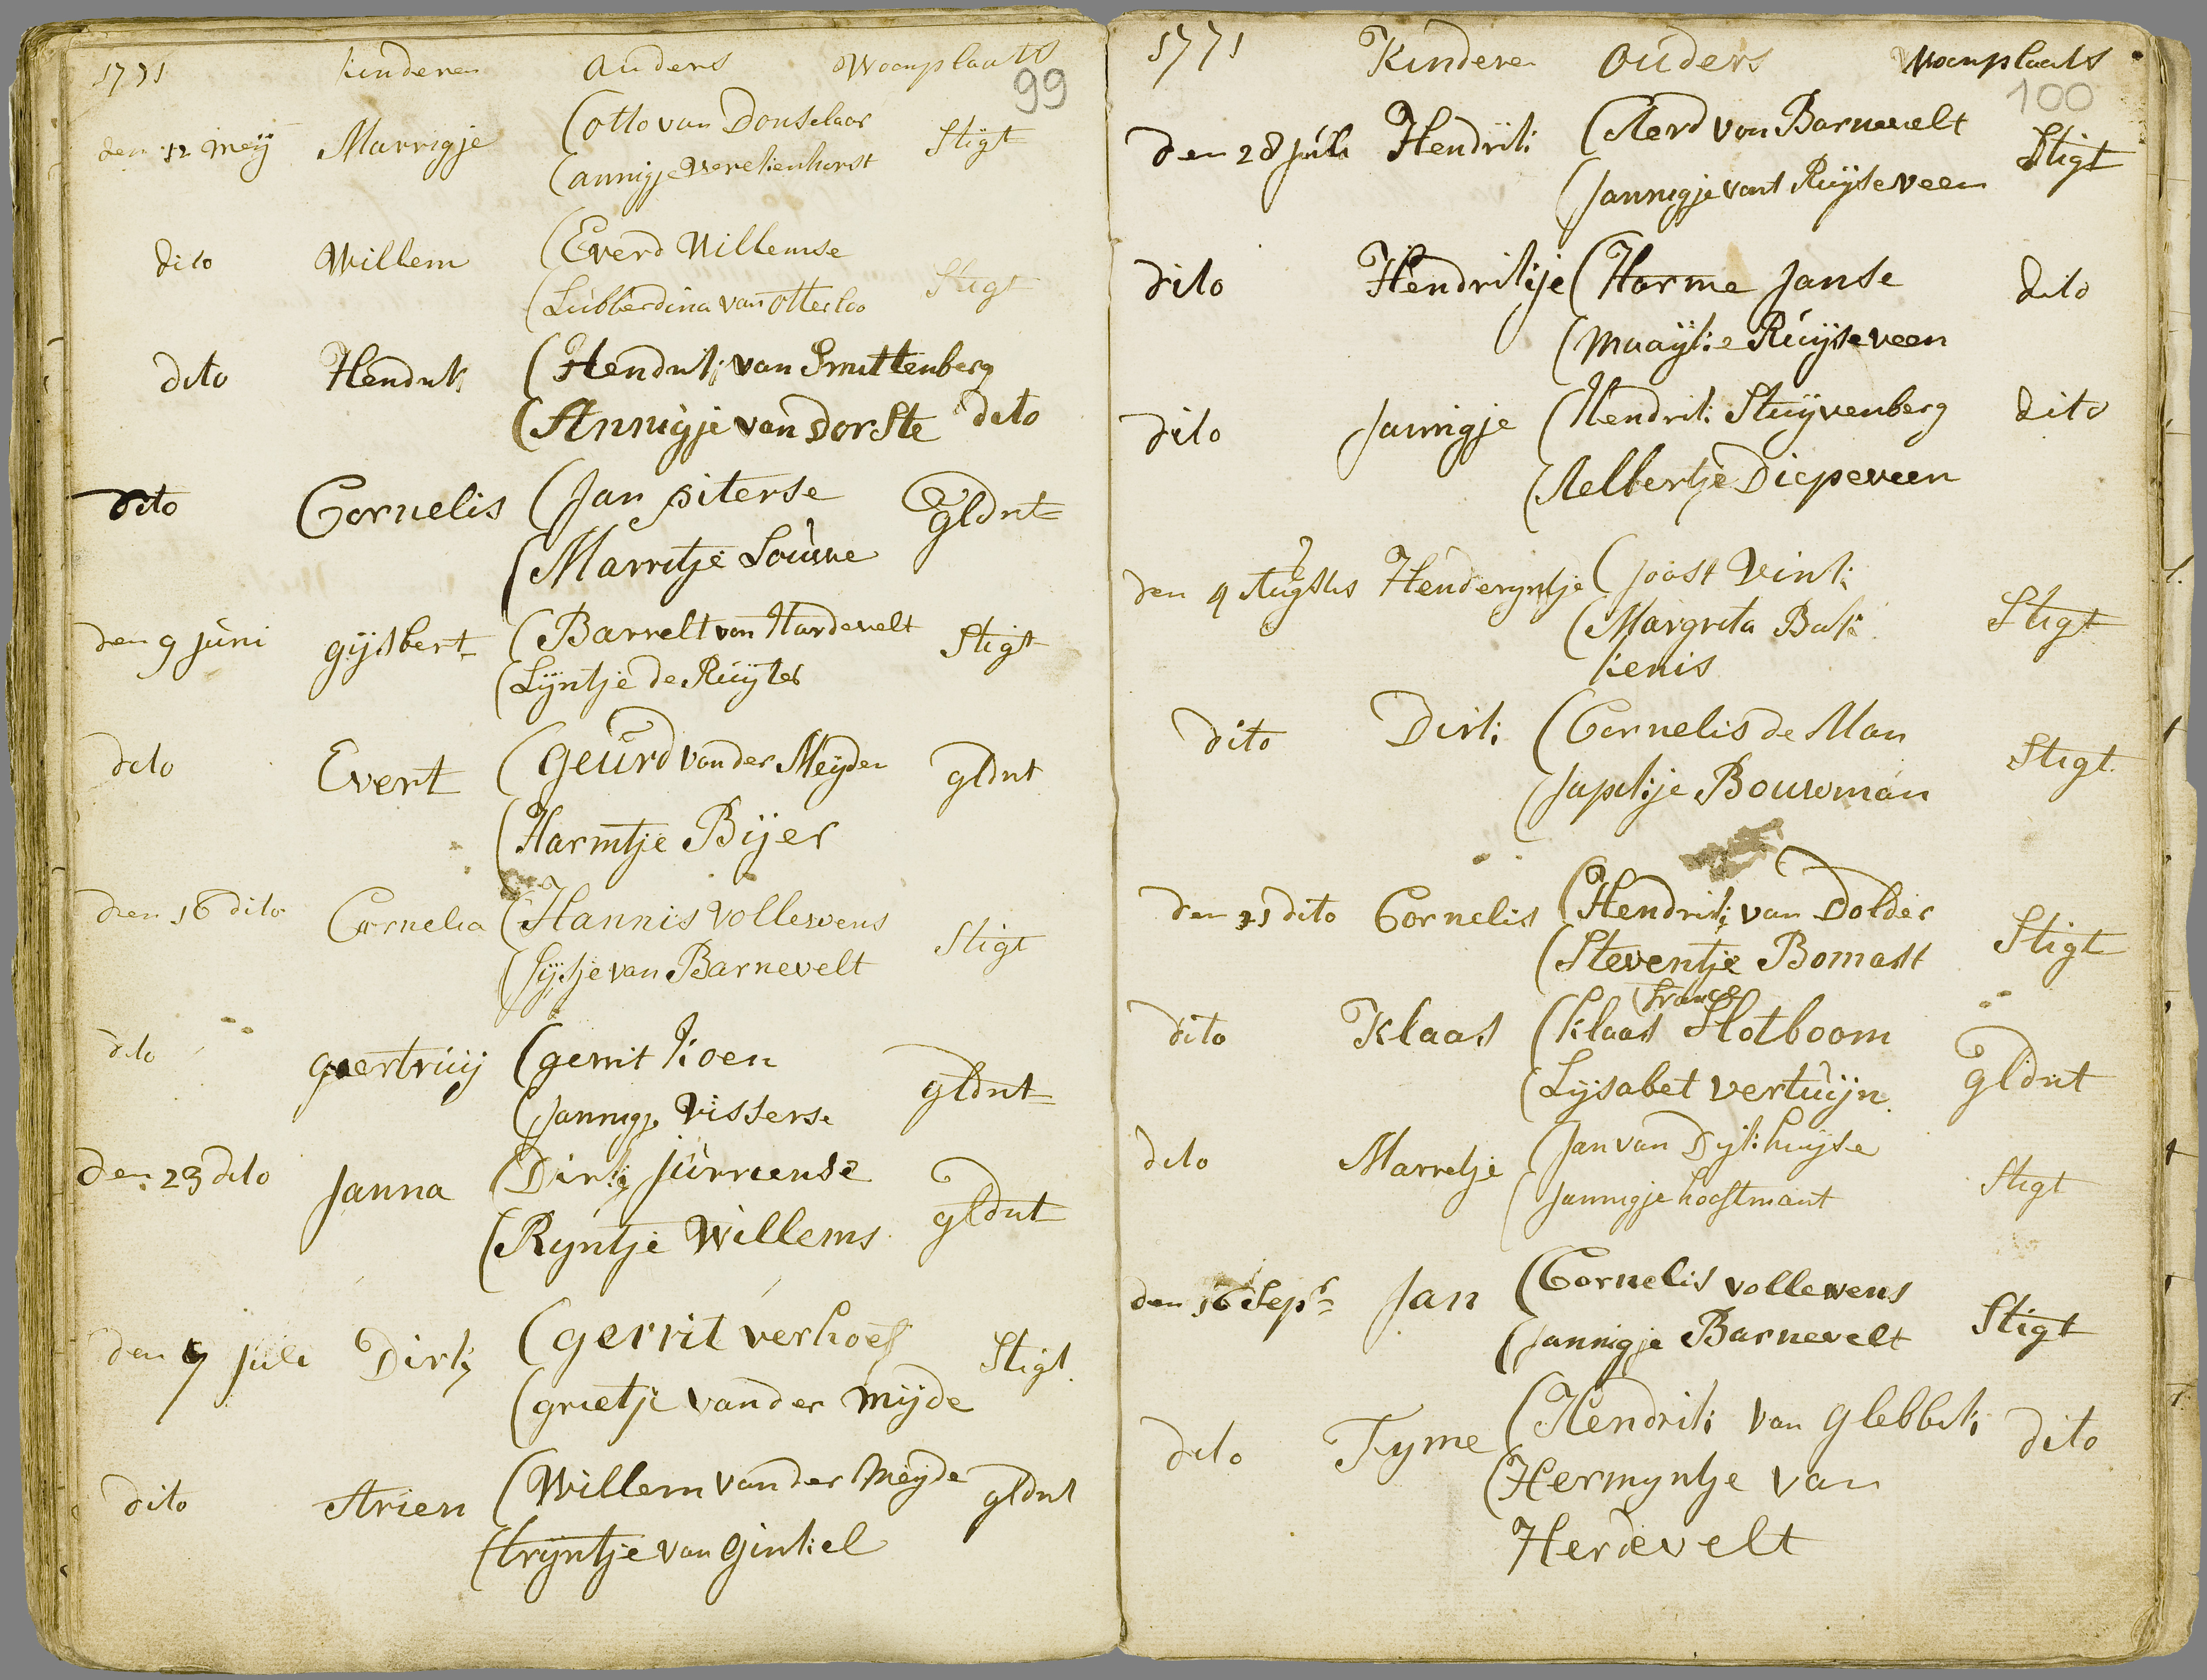 1771 kinderen ouders Woonplaats
99
den 12 meij Marrigje (otto van Donselaar Stigt
(annigje Verekenhorst
dito Willem (Everd Willemse
(Lubberdina van otterloo Stigt
dito Hendrik (Hendrik van Smittenberg
(Annigje van Dorste dito
dito Cornelis (Jan piterse gldrt
(Marritje Louwe
den 9 Juni gijsbert (Barrelt van Hardevelt Stigt
(Lijntje de Ruijter
dito Evert (geurd van der Meijden gldrt
(Harmtje Bijer
den 16 dito Cornelia (Hannis vollewens Stigt
(Sijtje van Barnevelt
dito geertruij (gerrit koen gldrt
(Jannigje Visserse
den 23 dito Janna (Dirk Jurriense gldrt
(Ryntje Willems
den 7 Juli Dirk (gerrit verhoef Stigt
(grietje van der mijde
dito Arien (Willem van der Meijde gldrt
(trijntje van ginkel
1771 Kinderen ouders Woonplaats
100
den 28 Juli Hendrik (Aerd van Barnevelt Stigt
(Jannigje vant Ruijseveen
dito Hendrikje (Harme Janse dito
(maaijke Ruijseveen
dito Jannigje (Hendrik Stuijvenberg dito
(Aelbertje Diepeveen
den 4 Augstus Henderyntje (Joost Vink
(Margrita Bak Stigt
kenis
dito Dirk (Cornelis de Man
(Japikje Bouwman Stigt
den 11 dito Cornelis (Hendrik van Dolder
(Steventje Bomast Stigt
franse
dito Klaas (klaas Slotboom
(Lijsabet vertuijn gldrt
dito Marretje (Jan van Dijkhuijse
(Jannigje hooftmant Stigt
den 16 Sepr Jan (Cornelis vollewens
(Jannigje Barnevelt Stigt
dito Tyme (Hendrik van glebbek dito
(Hermyntje van
Herdevelt